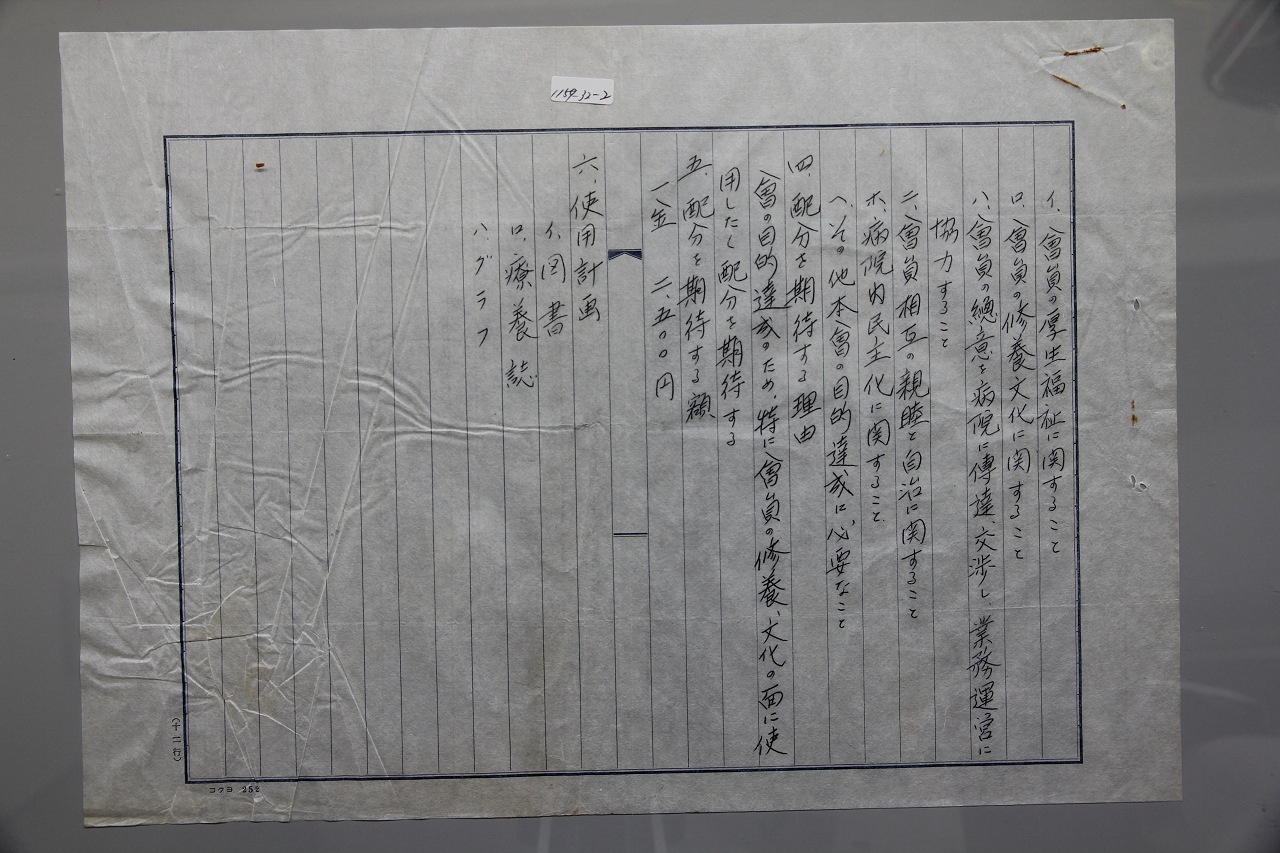 1159-32-2
イ、會員の厚生福祉に関すること
ロ、會員の修養文化に関すること
ハ、會員の總意を病院に傳達、交渉し、業務運営に
協力すること
ニ、會員相互の親睦と自治に関すること
ホ、病院内民主化に関すること
ヘ、その他本會の目的達成に必要なこと
四、配分を期待する理由
會の目的達成のため、特に會員の修養、文化の面に使
用したく配分を期待する
五、配分を期待する額
一金 二、五〇〇円
六、使用計画
イ、図書
ロ、療養誌
ハ、グラフ
(十二行)
コクヨ 252